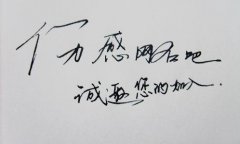 力感网名吧
诚邀您的加入.